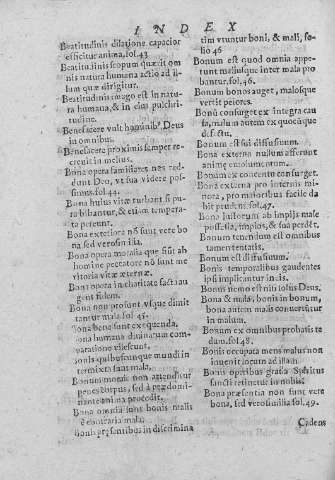 INDEX
Beatitudinis dilatione capacior
efficitur anima, fol. 43
Beatitudinis scopum quærit om
nis natura humana actio ad il-
lum quæ dirigitur.
Beatitudinis imago est in natu-
ra humana, & in eius pulchri-
tudine.
Benefacere vult hominibꝰ Deus
in omnibus.
Benefacere proximis semper re-
cercuit in melius.
Bona opera familiares nos red-
dunt Deo, vt sua videre pos-
simus. fol. 44.
Bona huius vitæ turbant si pu-
ra bibantur, & etiam tempera-
ta pereunt.
Bona exteriora nō sunt vere bo
na sed verosimilia.
Bona opera moralia quæ fiūt ab
homine peccatore nō sunt me
ritoria vitæ æternæ.
Bona opera in charitate facta au
gent fidem.
Bona non prosunt vsque dimit
tantur mala fol. 45.
Bona bene sunt exequenda.
Bona humana diuinarum com-
paratione vilescunt.
Bonis quibuscunque mundi in
termixta sunt mala.
Bonum morale non attenditur
penes corpus, sed à prædomi-
nante animi procedit.
Bona omnia sunt bonis malis
è contraria mala.
Bonis præsentibus in discrimina
tim vtuntur boni, & mali, fo-
lio 46
Bonum est quod omnia appe-
tunt maliusque inter mala pro
bantur. fol. 46.
Bonum bonos auget, malosque
vertit peiores.
Bonū consurget ex integra cau
sa, malum autem ex quocūque
defectu.
Bonum est sui diffusiuum.
Bona externa nullum afferunt
animæ emolumentum.
Bonum ex concentu consurget.
Bona externa pro internis mi-
nora, pro maioribus facile da
bit prudens fol. 47.
Bona iustorum ab impijs male
possessa, impios, & sua perdēt.
Bonum tenendum est omnibus
tamentatatis.
Bonum est diffusiuum.
Bonis temporalibus gaudentes
ipsi implicantur in eis.
Bonus nemo est nisi solus Deus.
Bona & mala, bonis in bonum,
bona autem malis conuertitur
in malum.
Bonum ex omnibus probatis te
dum. fol. 48.
Bonis occupata mens malus non
inuenit locum ad illam.
Bonis omnibus gratia Spiritus
sancti retinetur in nobis.
Bona præsentia non sunt vere
bona, sed verosimilia fol. 49.
Cadens